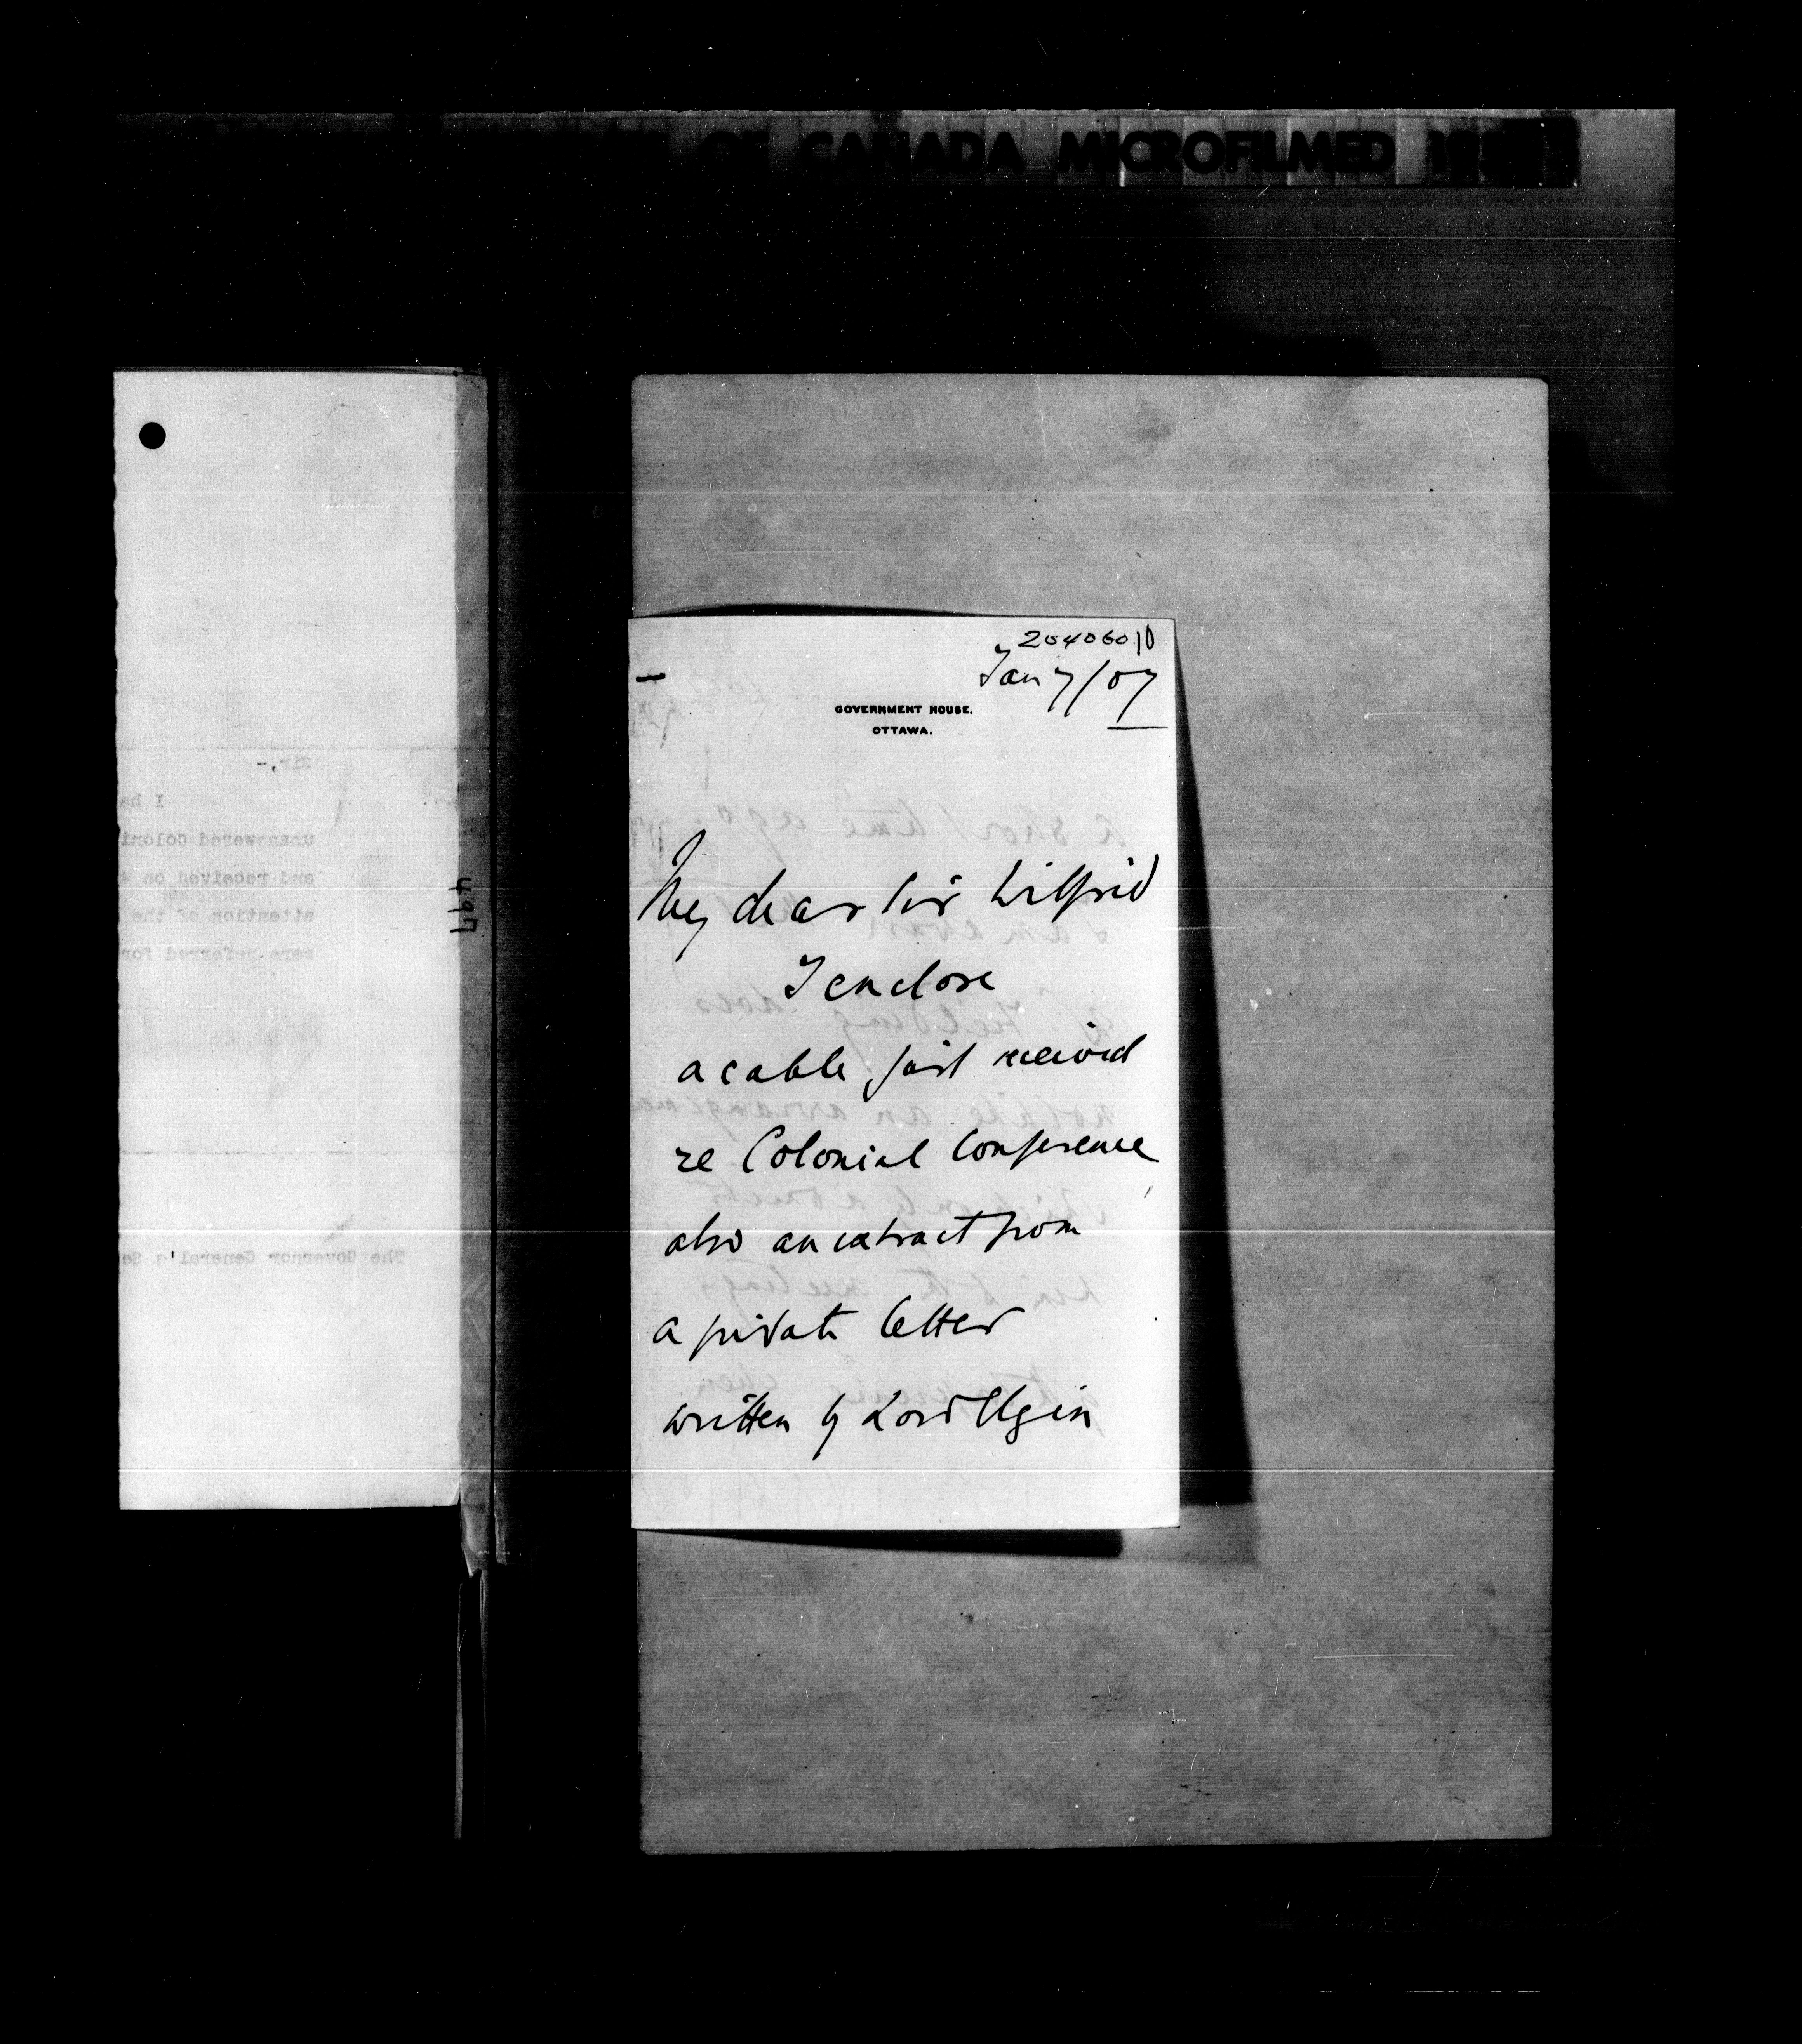 OF CANADA MICROFILMED
204060
Jan 7/07
GOVERNMENT HOUSE.
OTTAWA.
My dear Sir Wilfrid
I enclose
a cable just received
re Colonial Conference
also an extract from
a private letter
written by Lord Elgin
497
Sir,-
I ha
unanswered Coloni
and received on
attention of the
were referred for
The Governor General's Se